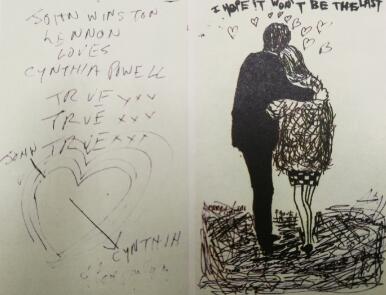 JOHN WINSTON
LENNON
LOVES
CYNTHIA POWELL
TRUE xxx
TRUE xxx
TRUE xxx
JOHN
CYNTHIA
I HOPE IT WON'T BE THE LAST